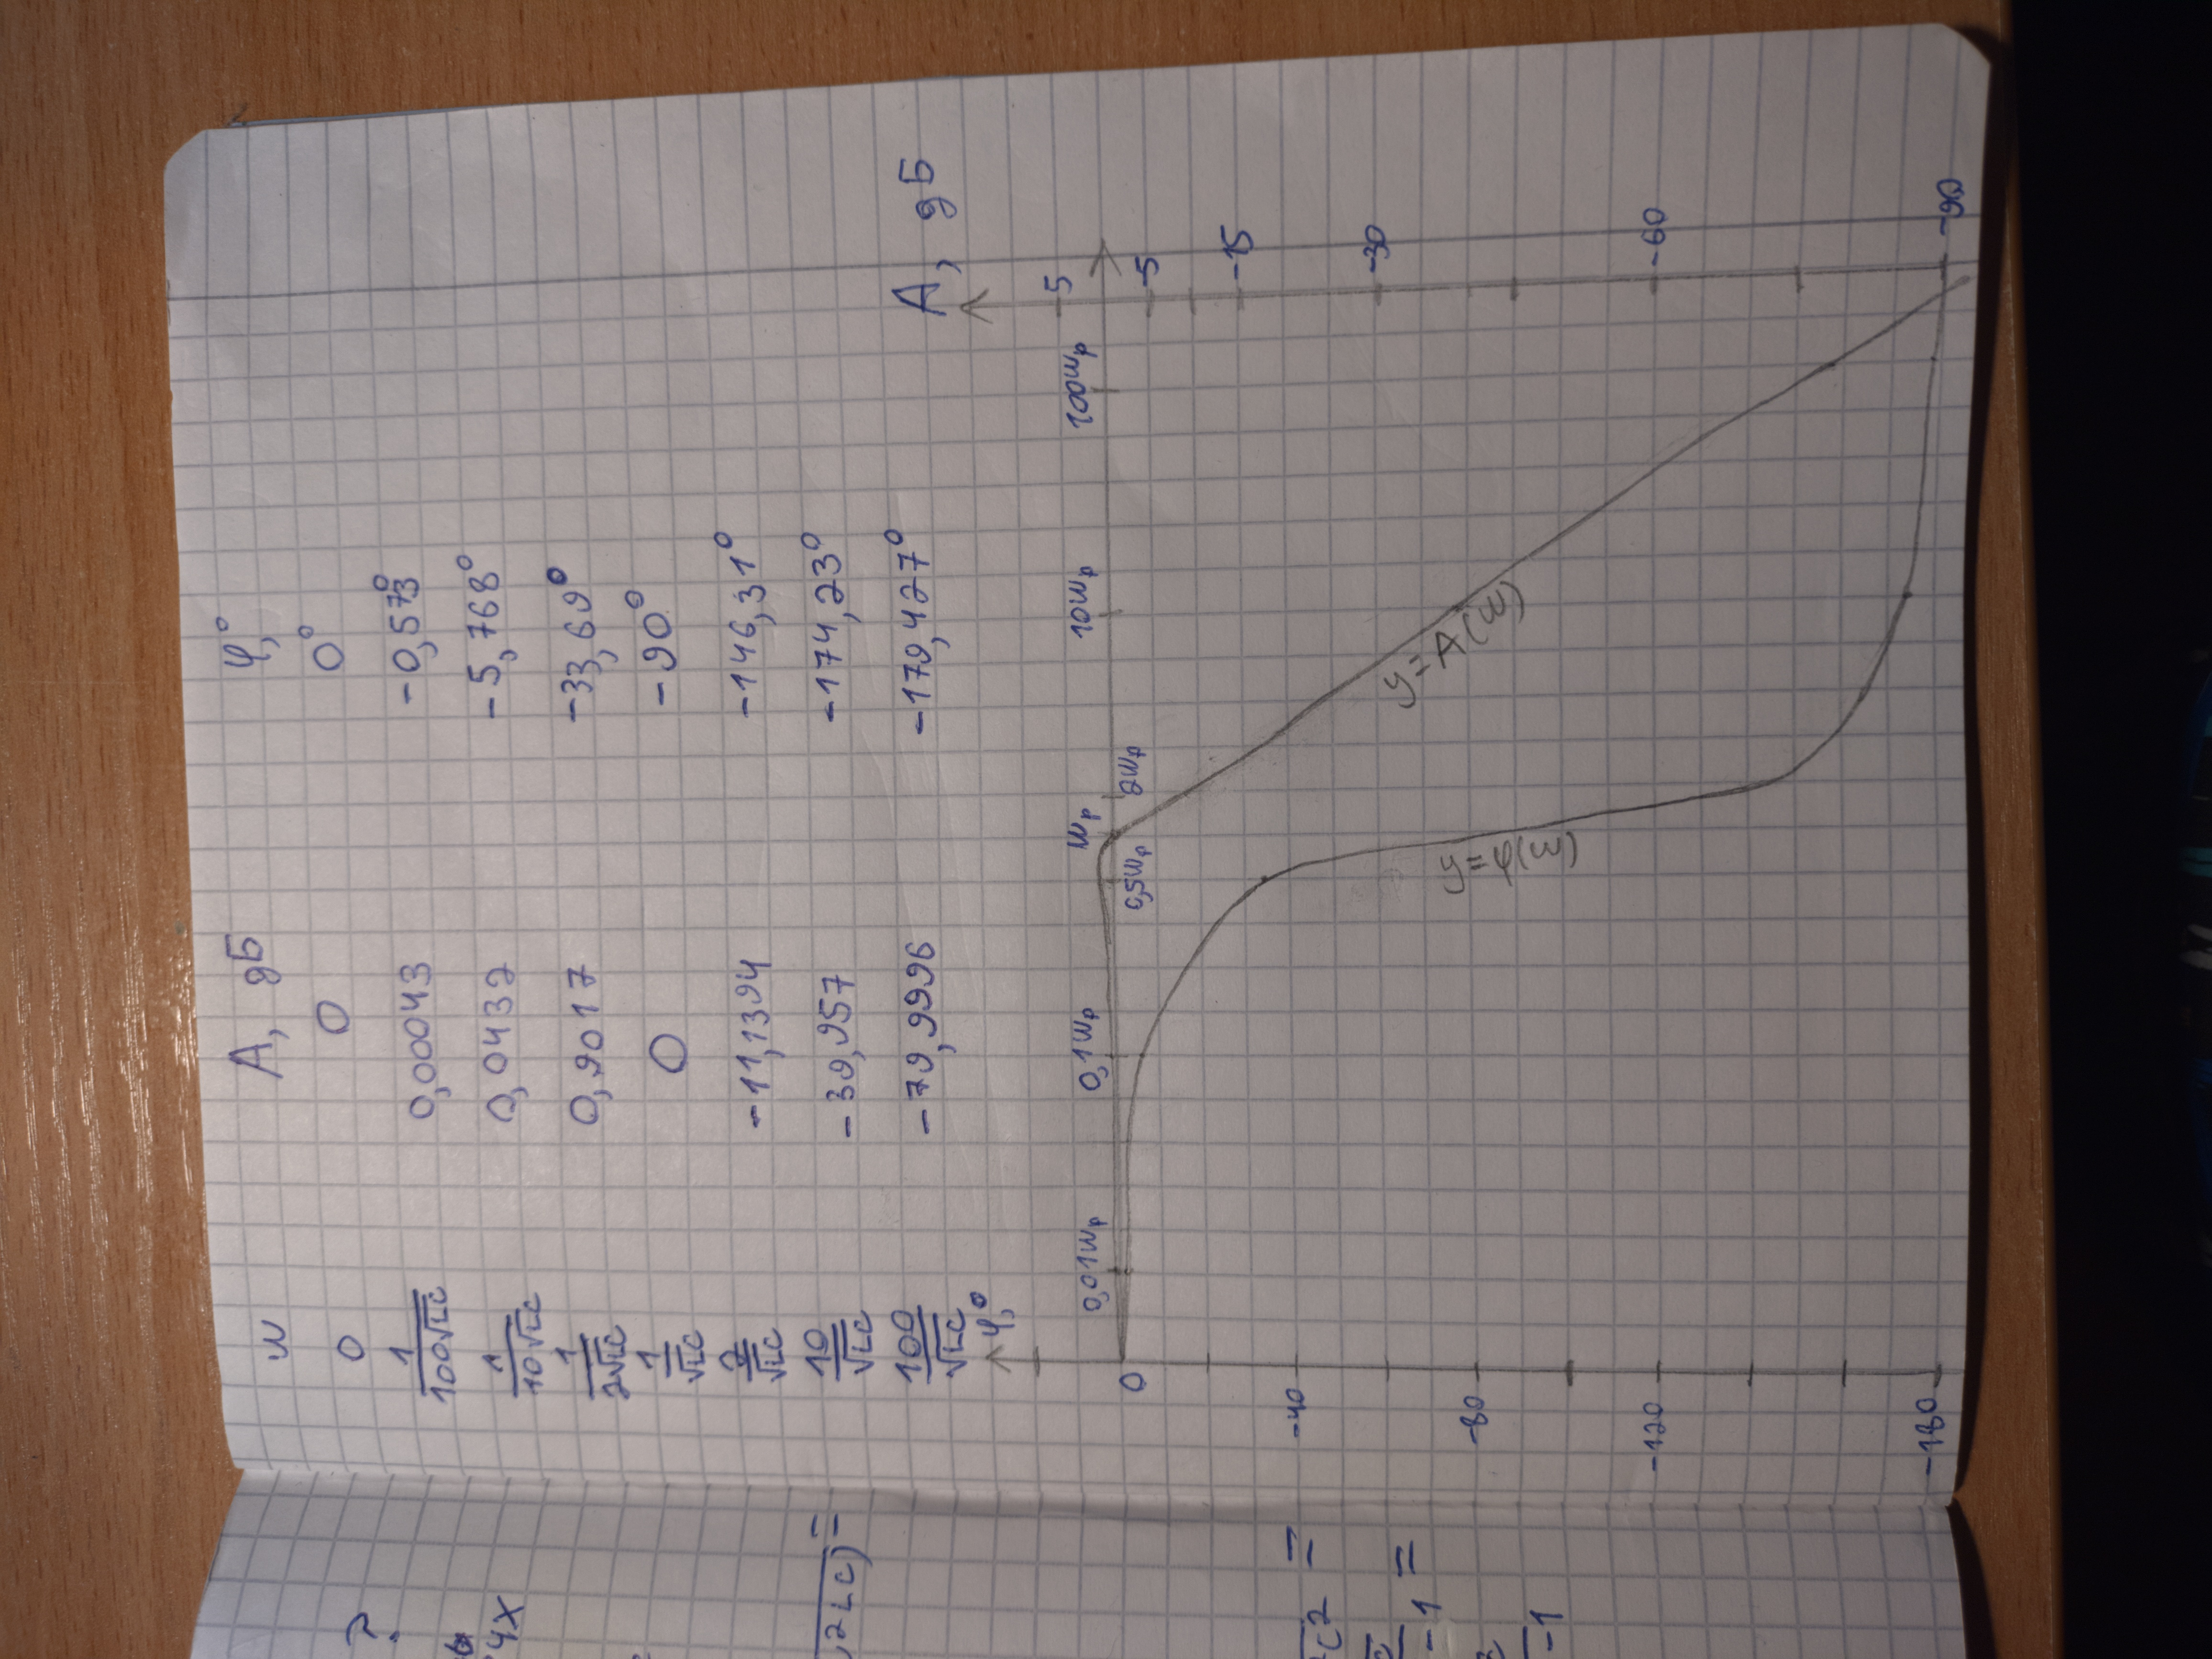 ω A, дБ φ,°
0 0 0°
1/100√LC 0,00043 -0,573°
1/10√LC 0,0432 -5,768°
1/2√LC 0,9017 -33,69°
1/√LC 0 -90°
2/√LC -11,1394 -146,31°
10/√LC -39,957 -174,23°
100/√LC -79,9996 -179,427°
?
4X
²LC) =
²C² =
-1 =
-1
φ,° A, дБ
5
0,01ωр 0,1ωр ωр 10ωр 100ωр
0 0,5ωр 2ωр -5
-15
-40
-30
y=A(ω)
-80
y=φ(ω)
-120 -60
-180 -90